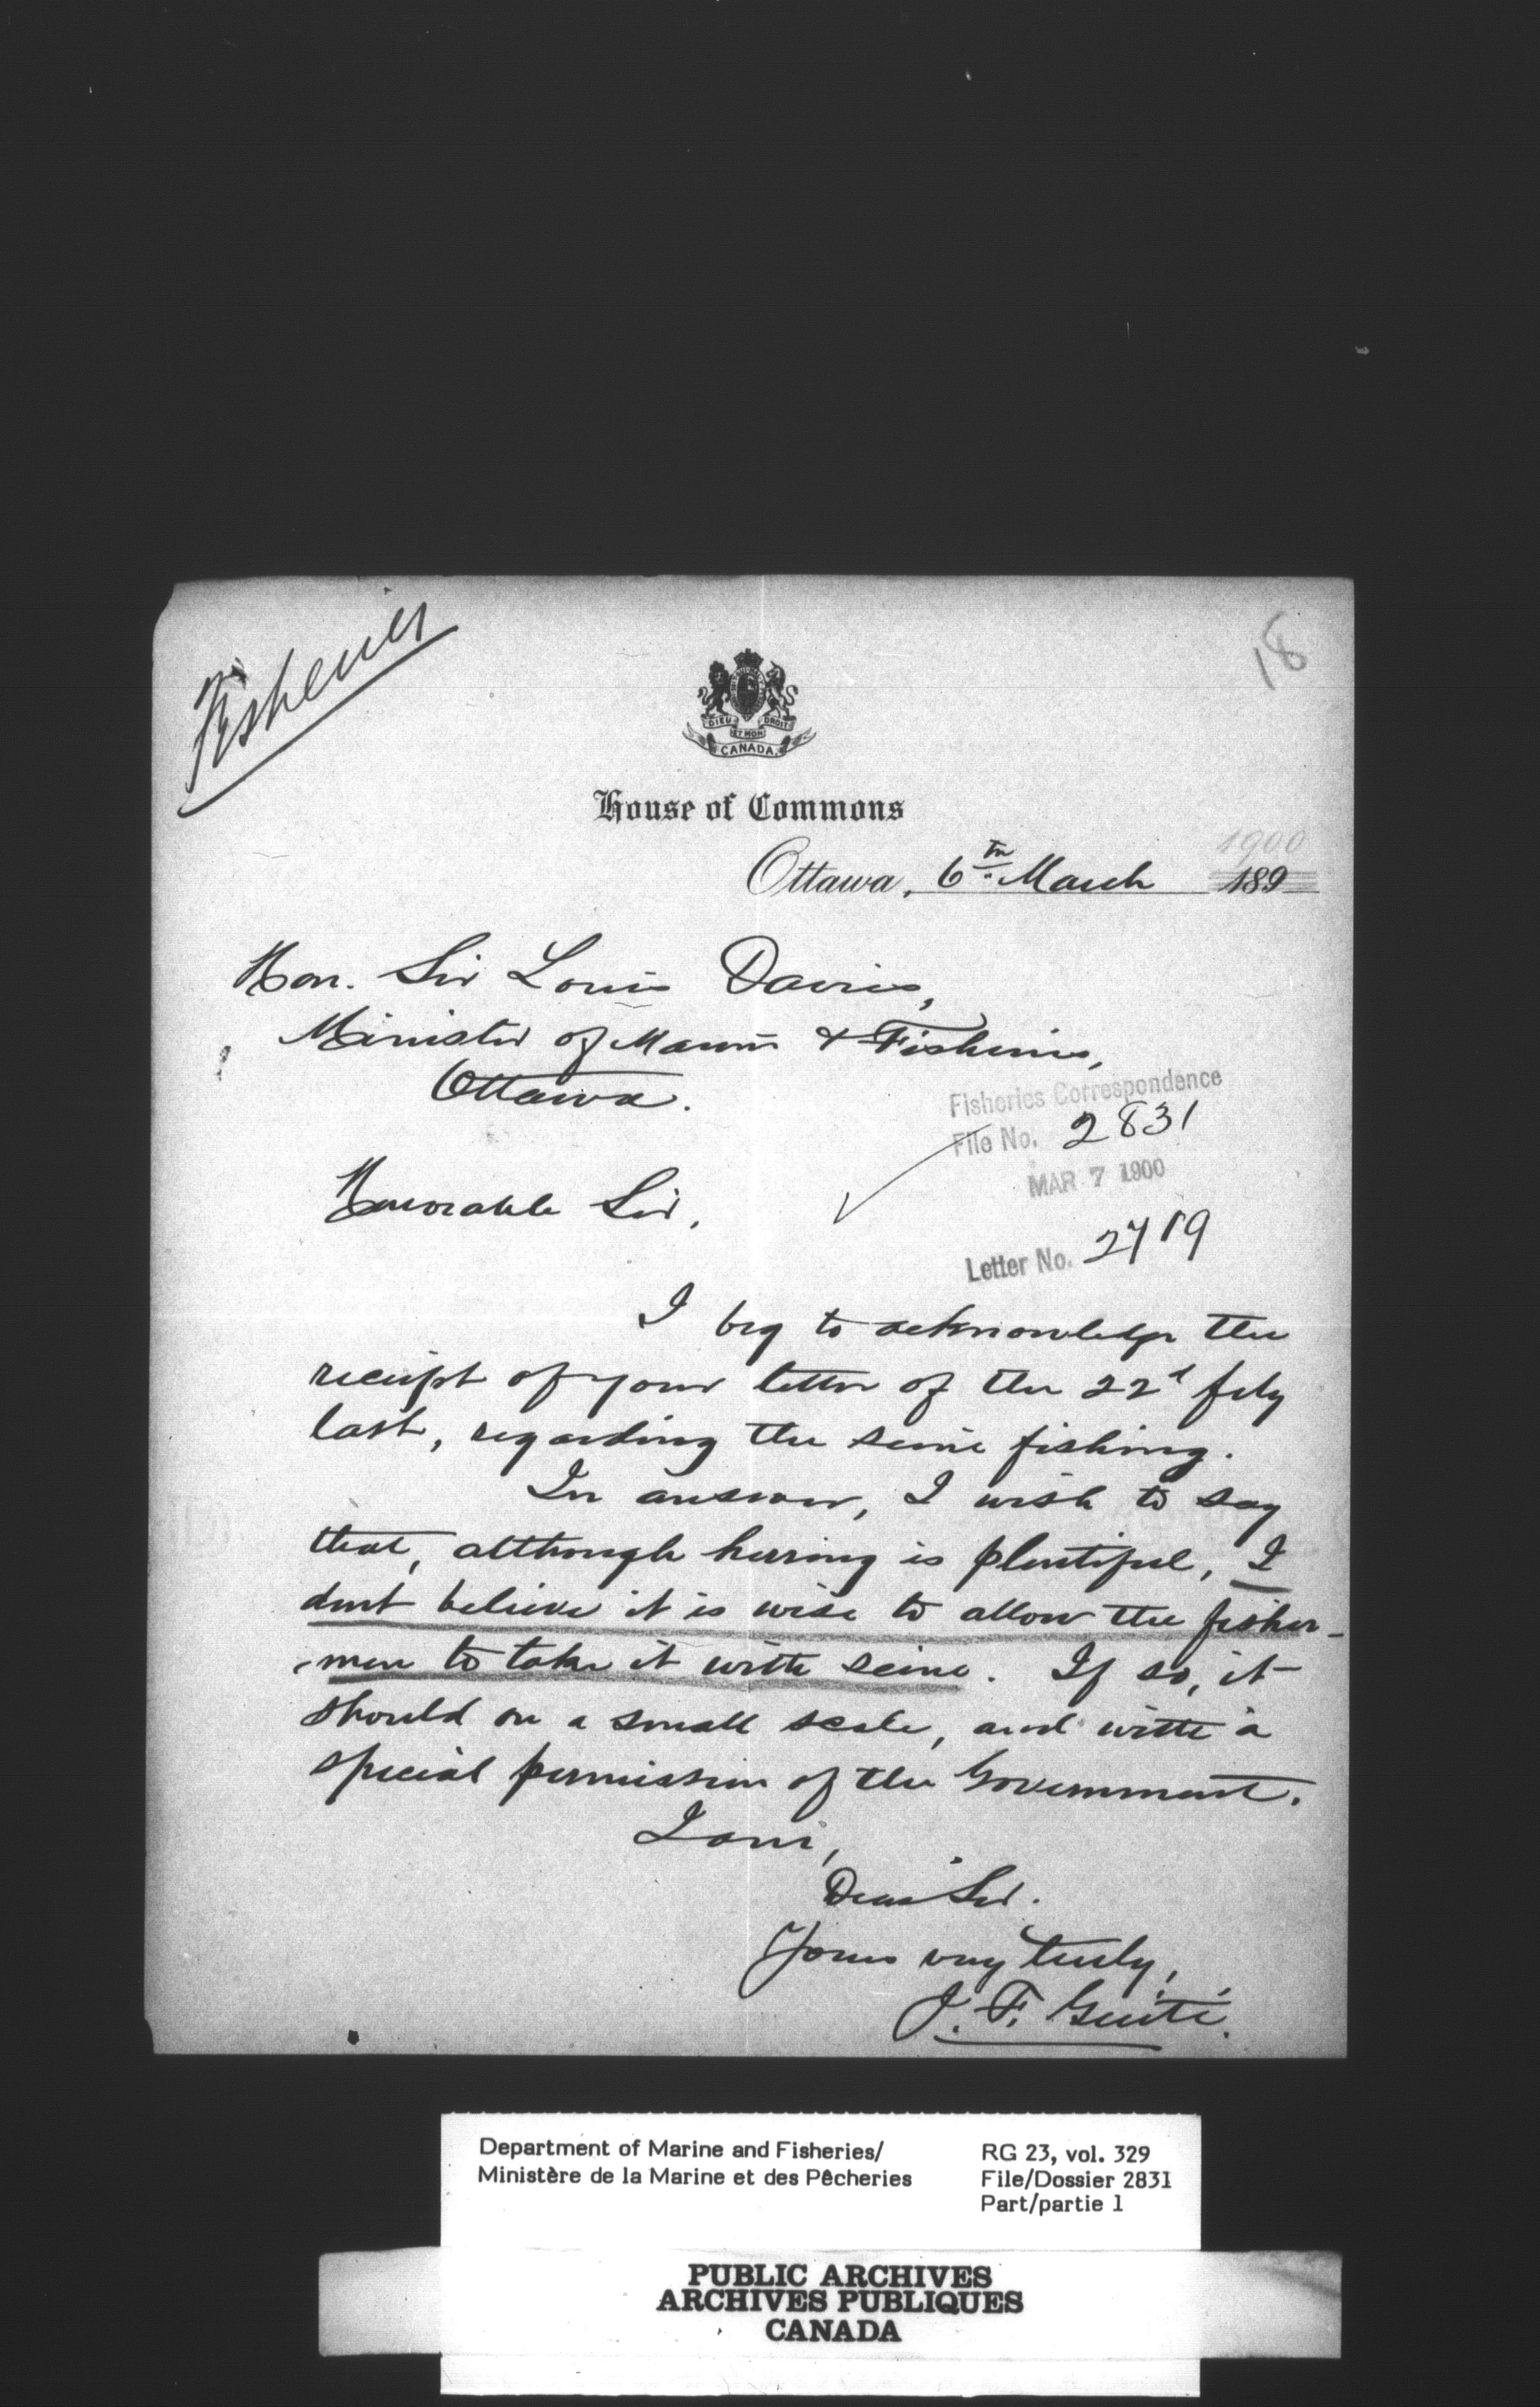 Fisheries
18
DIEU ET MON DROIT
CANADA
House of Commons
1900
Ottawa, 6th March 189
Hon. Sir Louis Davies,
Minister of Marine & Fisheries,
Ottawa.
Fisheries Correspondence
File No. 2831
MAR 7 1900
Letter No. 2719
Honorable Sir,
I beg to acknowledge the
receipt of your letter of the 22d feby
last, regarding the seine fishing.
In answer, I wish to say
that, although herring is plentiful, I
dont believe it is wise to allow the fisher-
-men to take it with seine. If so, it
should on a small scale, and with a
special permission of the Government.
I am,
Dear Sir.
Yours very truly,
J. F. Guité.
Department of Marine and Fisheries/
Ministère de la Marine et des Pêcheries
RG 23, vol. 329
File/Dossier 2831
Part/partie 1
PUBLIC ARCHIVES
ARCHIVES PUBLIQUES
CANADA